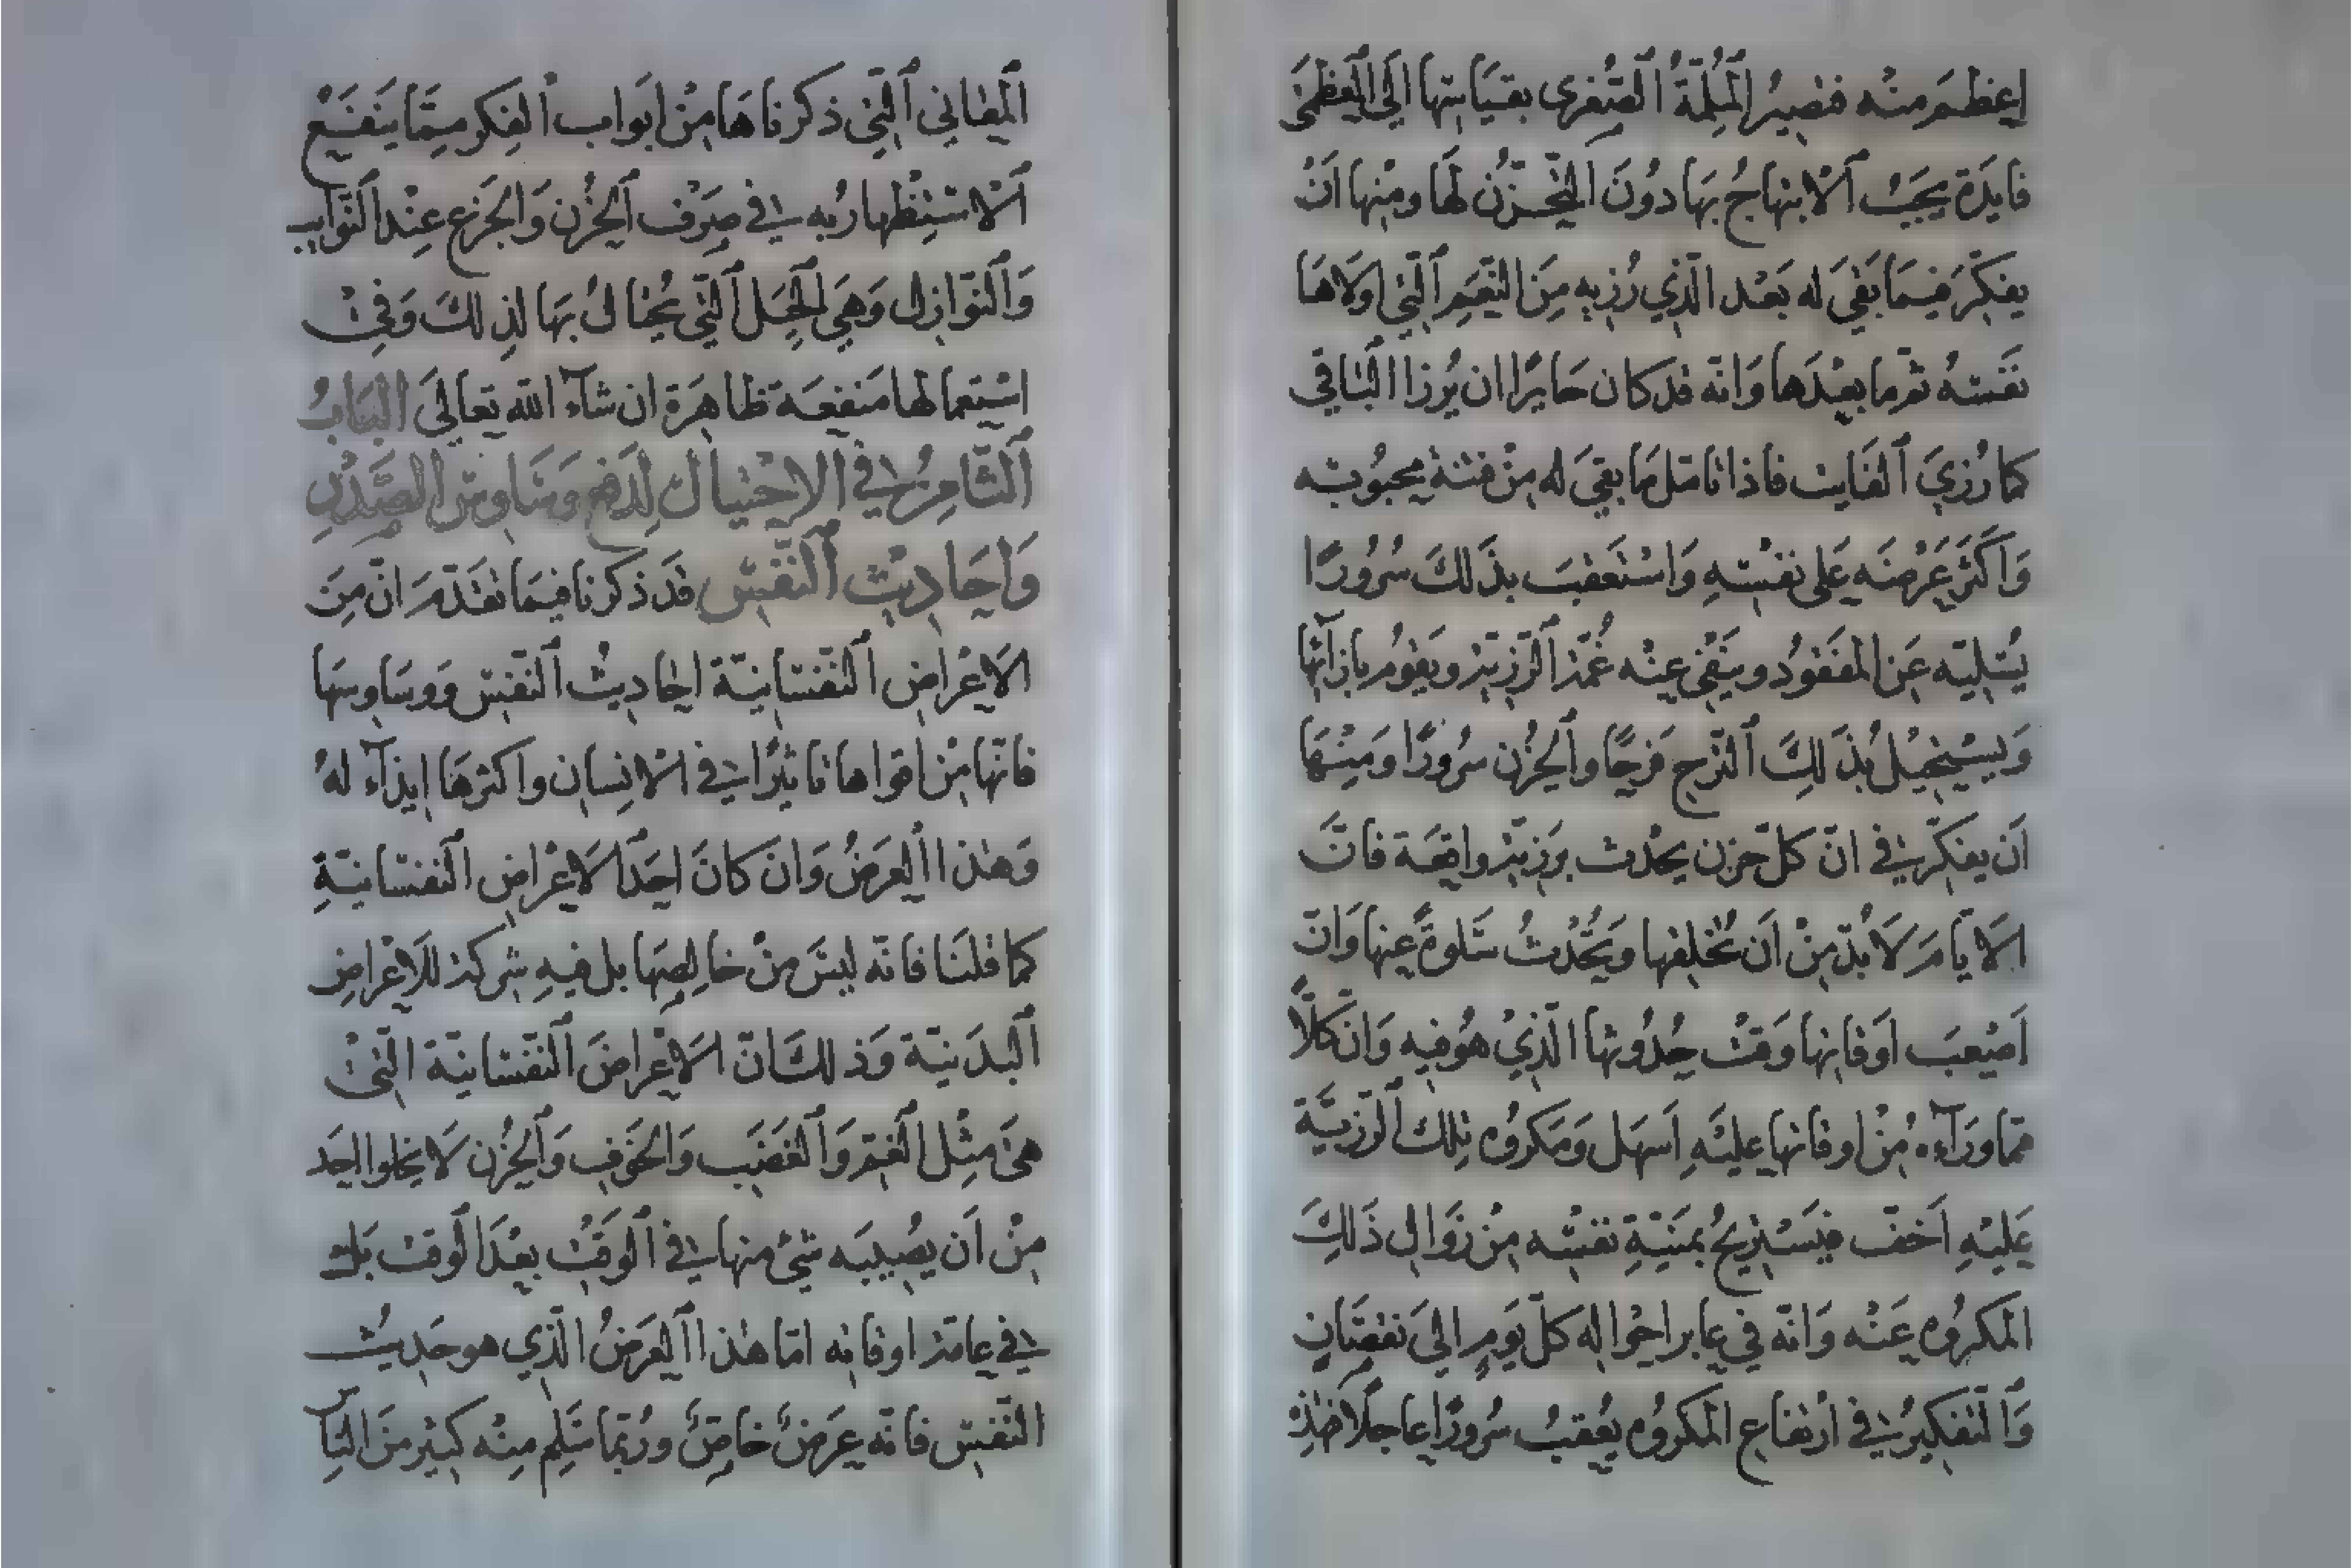 اعظم منه فتصير المُلِمّةُ الصّغرى بقياسها الى العظمى
فايدَة يجَبُ الابتهاجُ بهَا دوُنَ التّحزّن لهَا ومنها اَنْ
يفكّرَ فيمَا بَقيَ له بَعْد الّذي رُزِيه مِنَ النّعَم الّتي اولاهَا
نفسهُ ثم ما بعْدَها وَانه قد كان حَايرًا ان يُرزا البَاقي
كما رُزيَ الفَايت فاذا تامّل مَا بقيَ له مِنْ قنية محبُوبته
وَاكثر عَرْضَه عَلى نفسهِ وَاستعقبَ بذَلكَ سُرُورًا
يُسْليه عَن المفقوُد وينفى عنْه غُمّة الرّزية ويقوُم بازآئها
وَيسْتحيلُ بذَلِكَ التَّرح فرحًا والحُزن سُرورًا وَمنْهَا
اَن يفكّر في انّ كلّ حزن يحدُث برَزيّة واقعَة فانَّ
الاَيّامَ لاَ بُدّ مِنْ اَن تُخلِقها ويَحْدُثُ سَلوةً عنها وَانّ
اَصْعبَ اوَقاتها وَقتُ حُدُوثها الّذِيْ هُو فيه وَانّ كلّاً
ممّا ورَآءهُ منْ اوقاتها عليْهِ اَسهَل وَمَكروُه تِلك الرّزيّة
عَليْهِ اَخفّ فيَسْتريحُ بمَنيّةِ نفسْه مِنْ زَوَالِ ذَلكَ
المكروُه عَنْه وَانّه في عابر احْواله كلّ يَومٍ الىَ نقصَان
وَالتفكيرُ في ارْتفاع المكروُه يُعقبُ سُرورًا عاجلًا فهٰذِهْ
المعَاني الّتي ذكرناهَا منْ ابوَاب الفِكر ممّا ينفَعْ
الاسْتِظهارُ به في صَرْف الحُزْن وَالجَزع عِنْد النّوَايب
وَالنّوَازل وَهيَ الحِيَل الّتي يُحْتالُ بهَا لذلكَ وَفيْ
اسْتِعمالها مَنفعَة ظاهِرَة ان شآءَ الله تعالىَ البَابُ
الثّامِنُ في الاحْتيال لِدَفع وَسَاوس الصَّدْر
وَاحَاديْث النّفس قدَ ذكرنا فيمَا تقدّمَ انّ مِنَ
الاَعْراض النّفسَانيّة احَاديثُ النّفس ووسَاوسهَا
فانّها منْ اقواها تاثيْرًا في الانسان واكثرهَا ايذآء لهُ
وَهٰذا العَرَضُ وَانَ كانَ احَد الاَعْراض النّفسَانيّةِ
كما قلنَا فانّه ليْسَ منْ خالِصِهَا بل فيهِ شركة للاَعْراض
البَدَنيّة وَذلكَ انّ الاَعْراضَ النّفسَانيّة الّتيْ
هيَ مثِل الغَمّ وَالغَضَب وَالخَوف وَالحُزن لاَ يخلوا احَد
منْ اَن يصُيبَه شئ منها في الوَقتْ بعْدَ الوقت بَل
في عامّة اوقاته امّا هٰذا العَرَضُ الّذي هو حَديْث
النّفس فانّه عَرَضٌ خاصٌّ ورُبّما سَلِم منْه كثير منَ الناس